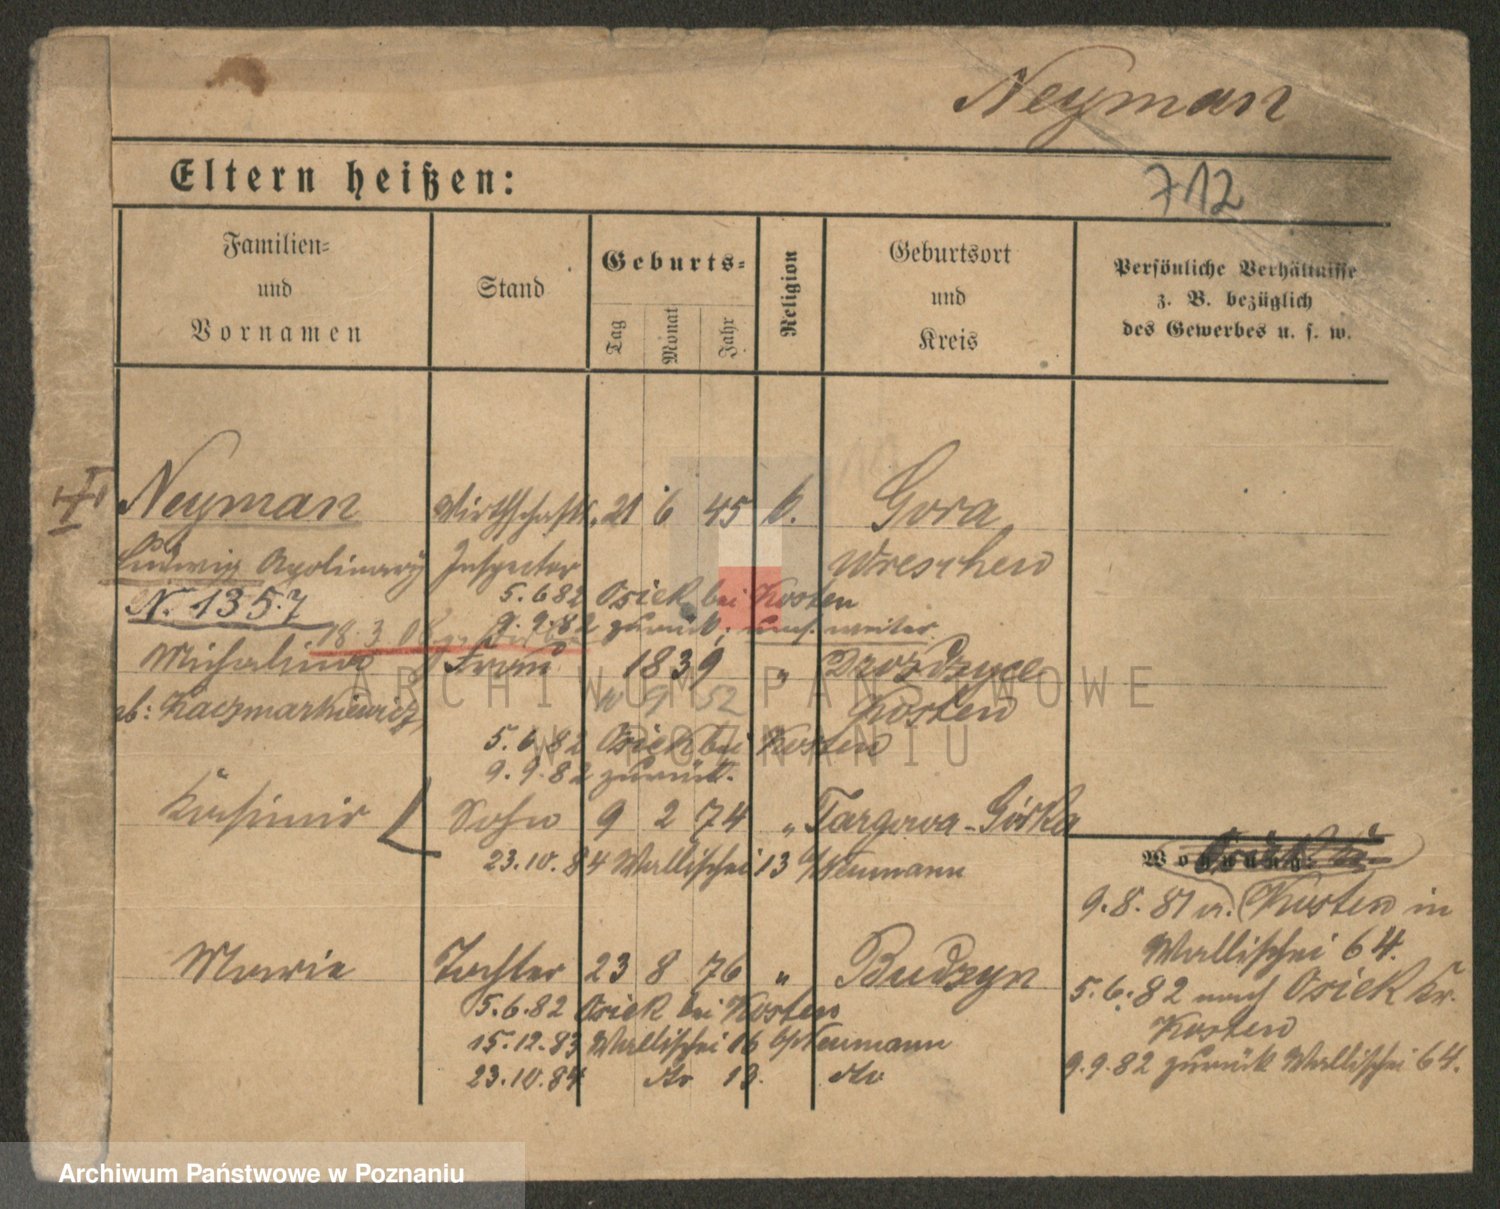 Neyman
712
Eltern heißen:
Familien-
und
Vornamen
Stand
Geburts-
Tag
Monat
Jahr
Religion
Geburtsort
und
Kreis
Persönliche Verhältnisse
z. B. bezüglich
des Gewerbes u. s. w.
Neyman Wirthschafts- 21 6 45 k. Gora
Ludwig Apolinary Inspector Wreschen
5.6.82 Osiek bei Kosten
N. 1357
9.9.82 zurück, weiter
18.3
Michalina Frau 1839 " Drożdzyce
9 52
gb: Kaczmarkiewicz Kosten
5.6.82 Osiek bei Kosten
9.9.82 zurück.
Kasimir Sohn 9 2 74 " Targowa-Górka
23.10.84 Wallischei 13 b/Neumann
Wohnung:
9.8.81 v. Kosten in
Wallischei 64.
Marie Tochter 23 8 76 " Budzyn
5.6.82 nach Osiek Kr.
Kosten
5.6.82 Osiek bei Kosten
15.12.83 Wallischei 16 b/Neumann
9.9.82 zurück Wallischei 64.
23.10.84 dto 13. dto
ARCHIWUM PAŃSTWOWE
W POZNANIU
Archiwum Państwowe w Poznaniu